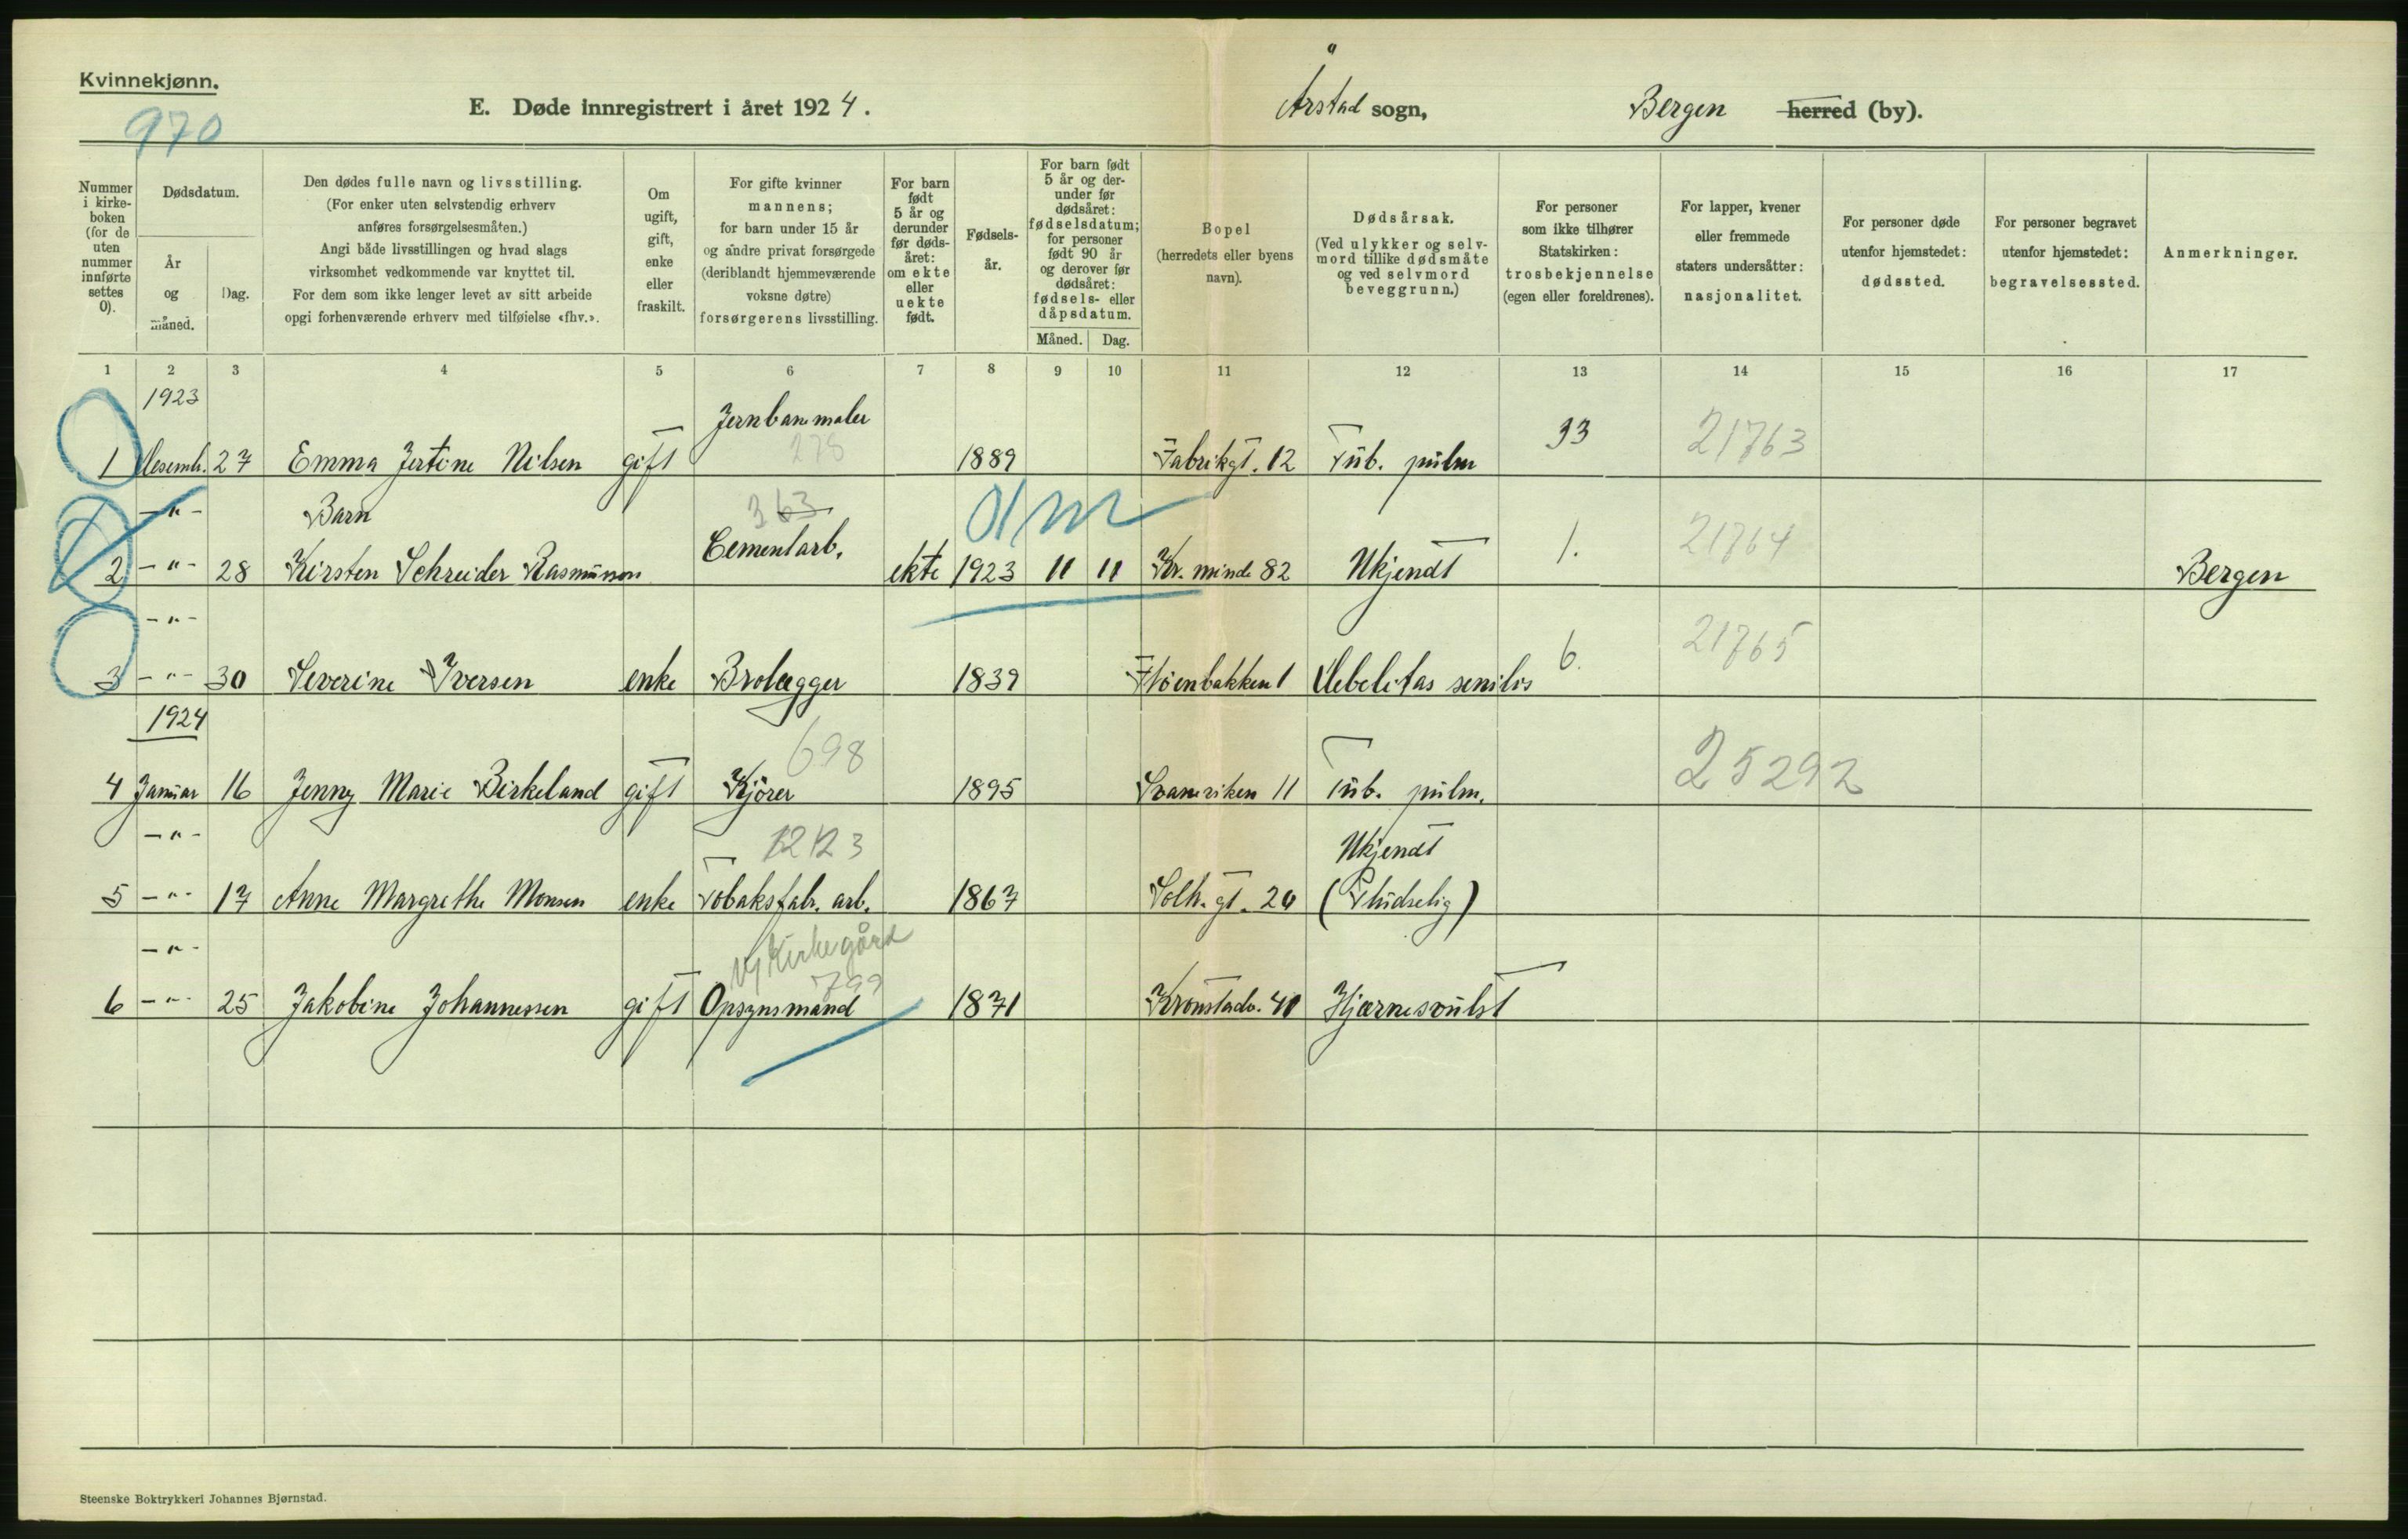 Kvinnekjønn.
970
E. Døde innregistrert i året 1924.
Årstad sogn,
Bergen herred (by).
Nummer i kirke-boken (for de uten nummer innførte settes 0).
Dødsdatum.
År og måned.
Dag.
Den dødes fulle navn og livsstilling.
(For enker uten selvstendig erhverv
anføres forsørgelsesmåten.)
Angi både livsstillingen og hvad slags
virksomhet vedkommende var knyttet til.
For dem som ikke lenger levet av sitt arbeide
opgi forhenværende erhverv med tilføielse «fhv.».
Om ugift, gift, enke eller fraskilt.
For gifte kvinner
mannens;
for barn under 15 år
og andre privat forsørgede
(deriblandt hjemmeværende
voksne døtre)
forsørgerens livsstilling.
For barn født 5 år og derunder før døds-året: om ekte eller uekte født.
Fødsels-år.
For barn født 5 år og der-under før dødsåret: fødselsdatum; for personer født 90 år og derover før dødsåret: fødsels- eller dåpsdatum.
Måned. Dag.
Bopel
(herredets eller byens
navn).
Dødsårsak.
(Ved ulykker og selv-
mord tillike dødsmåte
og ved selvmord
beveggrunn.)
For personer
som ikke tilhører
Statskirken:
trosbekjennelse
(egen eller foreldrenes).
For lapper, kvener
eller fremmede
staters undersåtter:
nasjonalitet.
For personer døde
utenfor hjemstedet:
dødssted.
For personer begravet
utenfor hjemstedet:
begravelsessted.
Anmerkninger.
1 2 3 4 5 6 7 8 9 10 11 12 13 14 15 16 17
1923
Jernbanemaler
278
1 Desemb. 27 Emma Jertine Nilsen gift 1889 Fabrikgt. 12 Tub. pulm 33 21763
-"- Barn 363
2 -"- 28 Kirsten Schreider Rasmussen Cementarb. ekte 1923 11 11 Kr. minde 82 Ukjendt 1. 21764 Bergen
-"-
3 -"- 30 Severine Iversen enke Brolægger 1839 Fløenbakken 1 Debelitas senilis 6. 21765
1924
698
4 Januar 16 Jenny Marie Birkeland gift Kjører 1895 Svaneviken 11 Tub. pulm. 25292
-"- Ukjendt
5 -"- 17 Anne Margrethe Monsen enke Tobaksfabr. arb. 1867 Solh. gt. 20 (Pludselig)
-"- Ny Kirkegård
799
6 -"- 25 Jakobine Johannessen gift Opsynsmand 1871 Kronstadv. 41 Hjernesvulst
Steenske Boktrykkeri Johannes Bjørnstad.